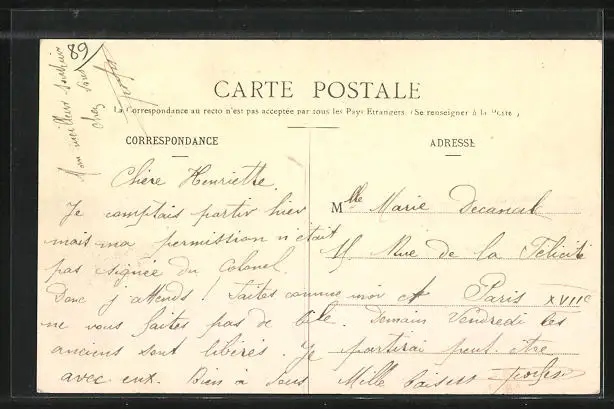 89
Mon meilleur souvenir
chez vous
CARTE POSTALE
La Correspondance au recto n'est pas acceptée par tous les Pays Etrangers. (Se renseigner à la Poste.)
CORRESPONDANCE
ADRESSE
Chère Henriette.
Je comptais partir hier
mais ma permission n'était
pas signée du Colonel.
Donc j'attends ! Faites comme moi et
ne vous faites pas de bile. Demain Vendredi les
anciens sont libérés. Je partirai peut-être
avec eux. Bien à vous Mille baisers
Mlle Marie
Rue de la Félicité
Paris XVIIe